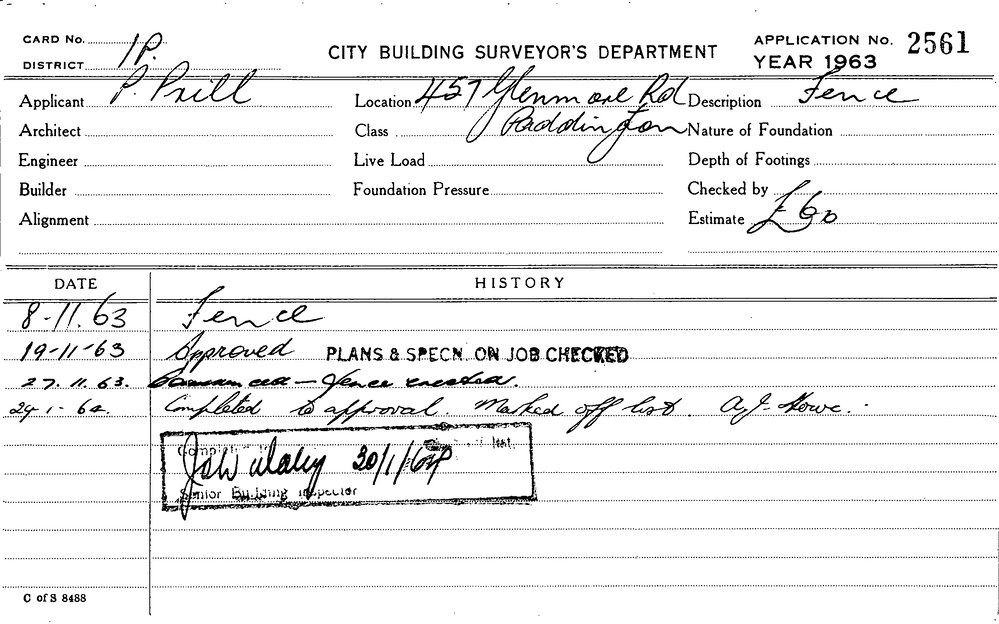 CARD No. 1P.
DISTRICT
CITY BUILDING SURVEYOR'S DEPARTMENT
APPLICATION No. 2561
YEAR 1963
Applicant P. Prill
Location 457 Glenmore Rd
Description Fence
Architect
Class Paddington
Nature of Foundation
Engineer
Live Load
Depth of Footings
Builder
Foundation Pressure
Checked by
Alignment
Estimate £60
DATE HISTORY
8-11.63 Fence
19-11-63 Approved PLANS & SPECN. ON JOB CHECKED
27.11.63. Commenced - Fence erected.
24-1-64. Completed to approval. Marked off list. A.J. Howe.
30/1/64
Senior Building Inspector
C of S 8488